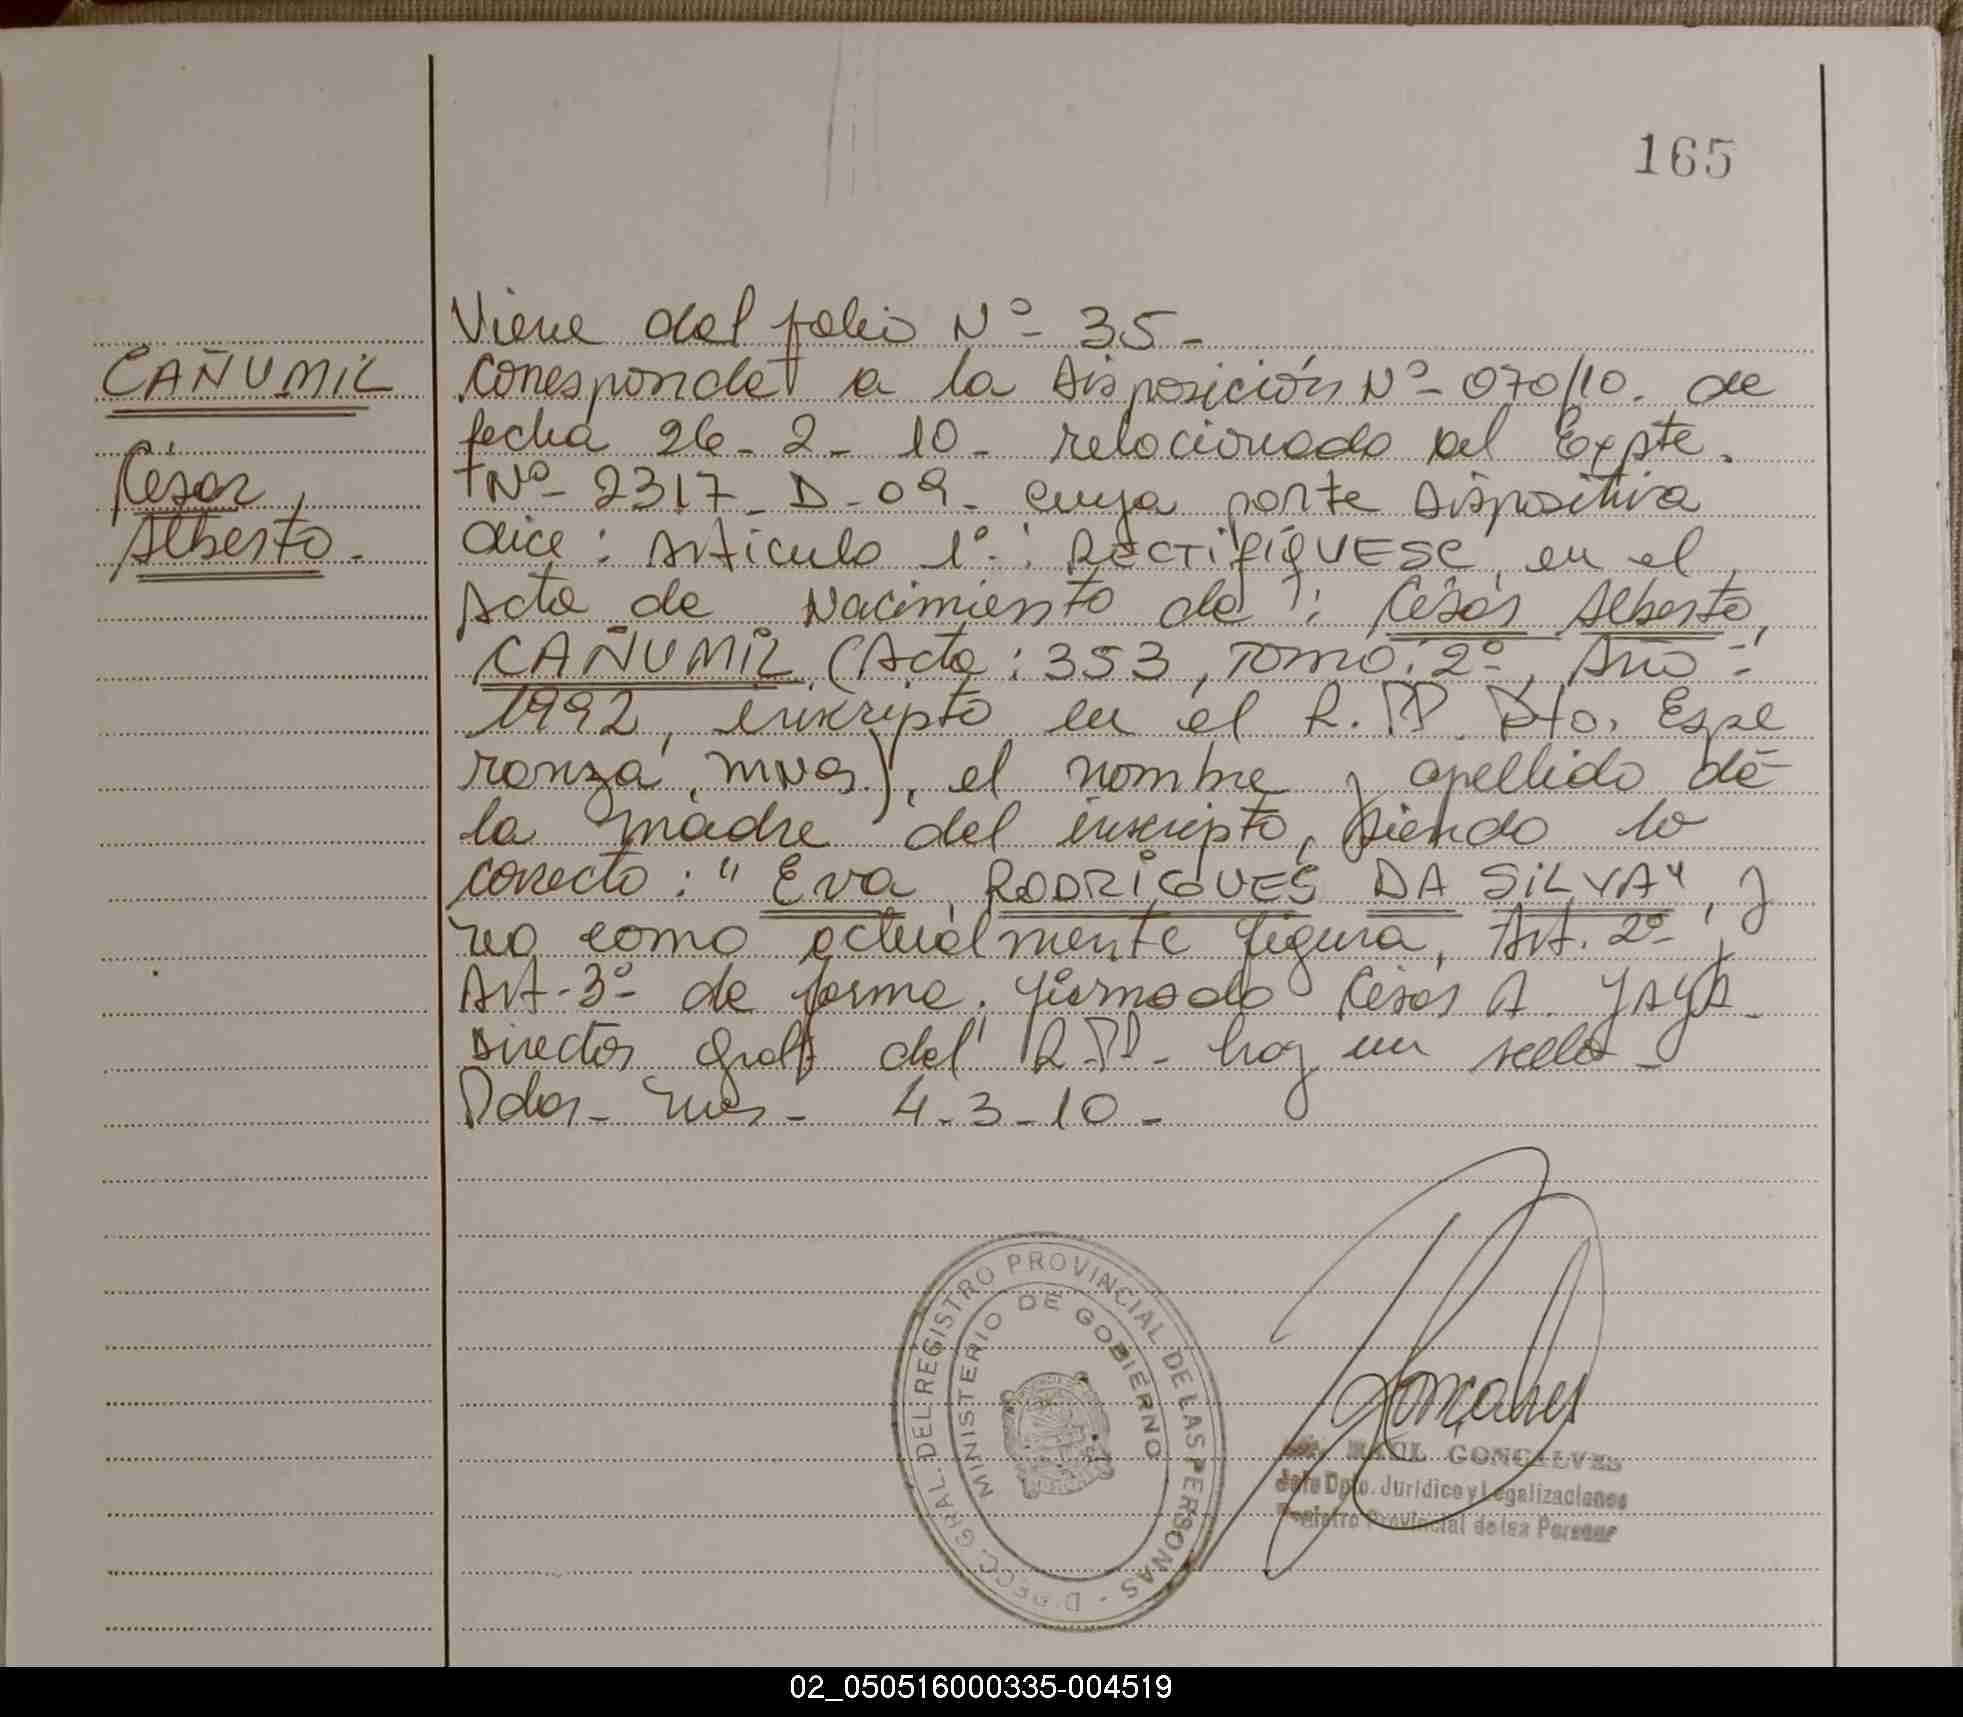 165
CAÑUMIL
César,
Alberto.-
Viene del folio Nº- 35-
corresponde a la Disposición Nº- 070/10. de
fecha 26-2-10- relacionado al Expte.
Nº- 2317-D-09- cuya parte Dispositiva
dice: Artículo 1º: RECTIFÍQUESE, en el
Acta de Nacimiento de: César Alberto,
CAÑUMIL, (Acta: 353, Tomo: 2º, Año:
1992, inscripto en el R.PP. Pto. Espe
ranza, MNES), el nombre y apellido de
la madre del inscripto, siendo lo
correcto: "Eva, RODRIGUES DA SILVA", y
no como actualmente figura, Art. 2º y
Art-3º- de forma. firmado César A. JAYA-
Director Gral del R.PP- hay un sello-
Pdas- Mnes- 4-3-10-
DIRECC. GRAL. DEL REGISTRO PROVINCIAL DE LAS PERSONAS -
MINISTERIO DE GOBIERNO
RAUL GONCALVES
Jefe Dpto. Jurídico y Legalizaciones
Registro Provincial de las Personas
02_050516000335-004519